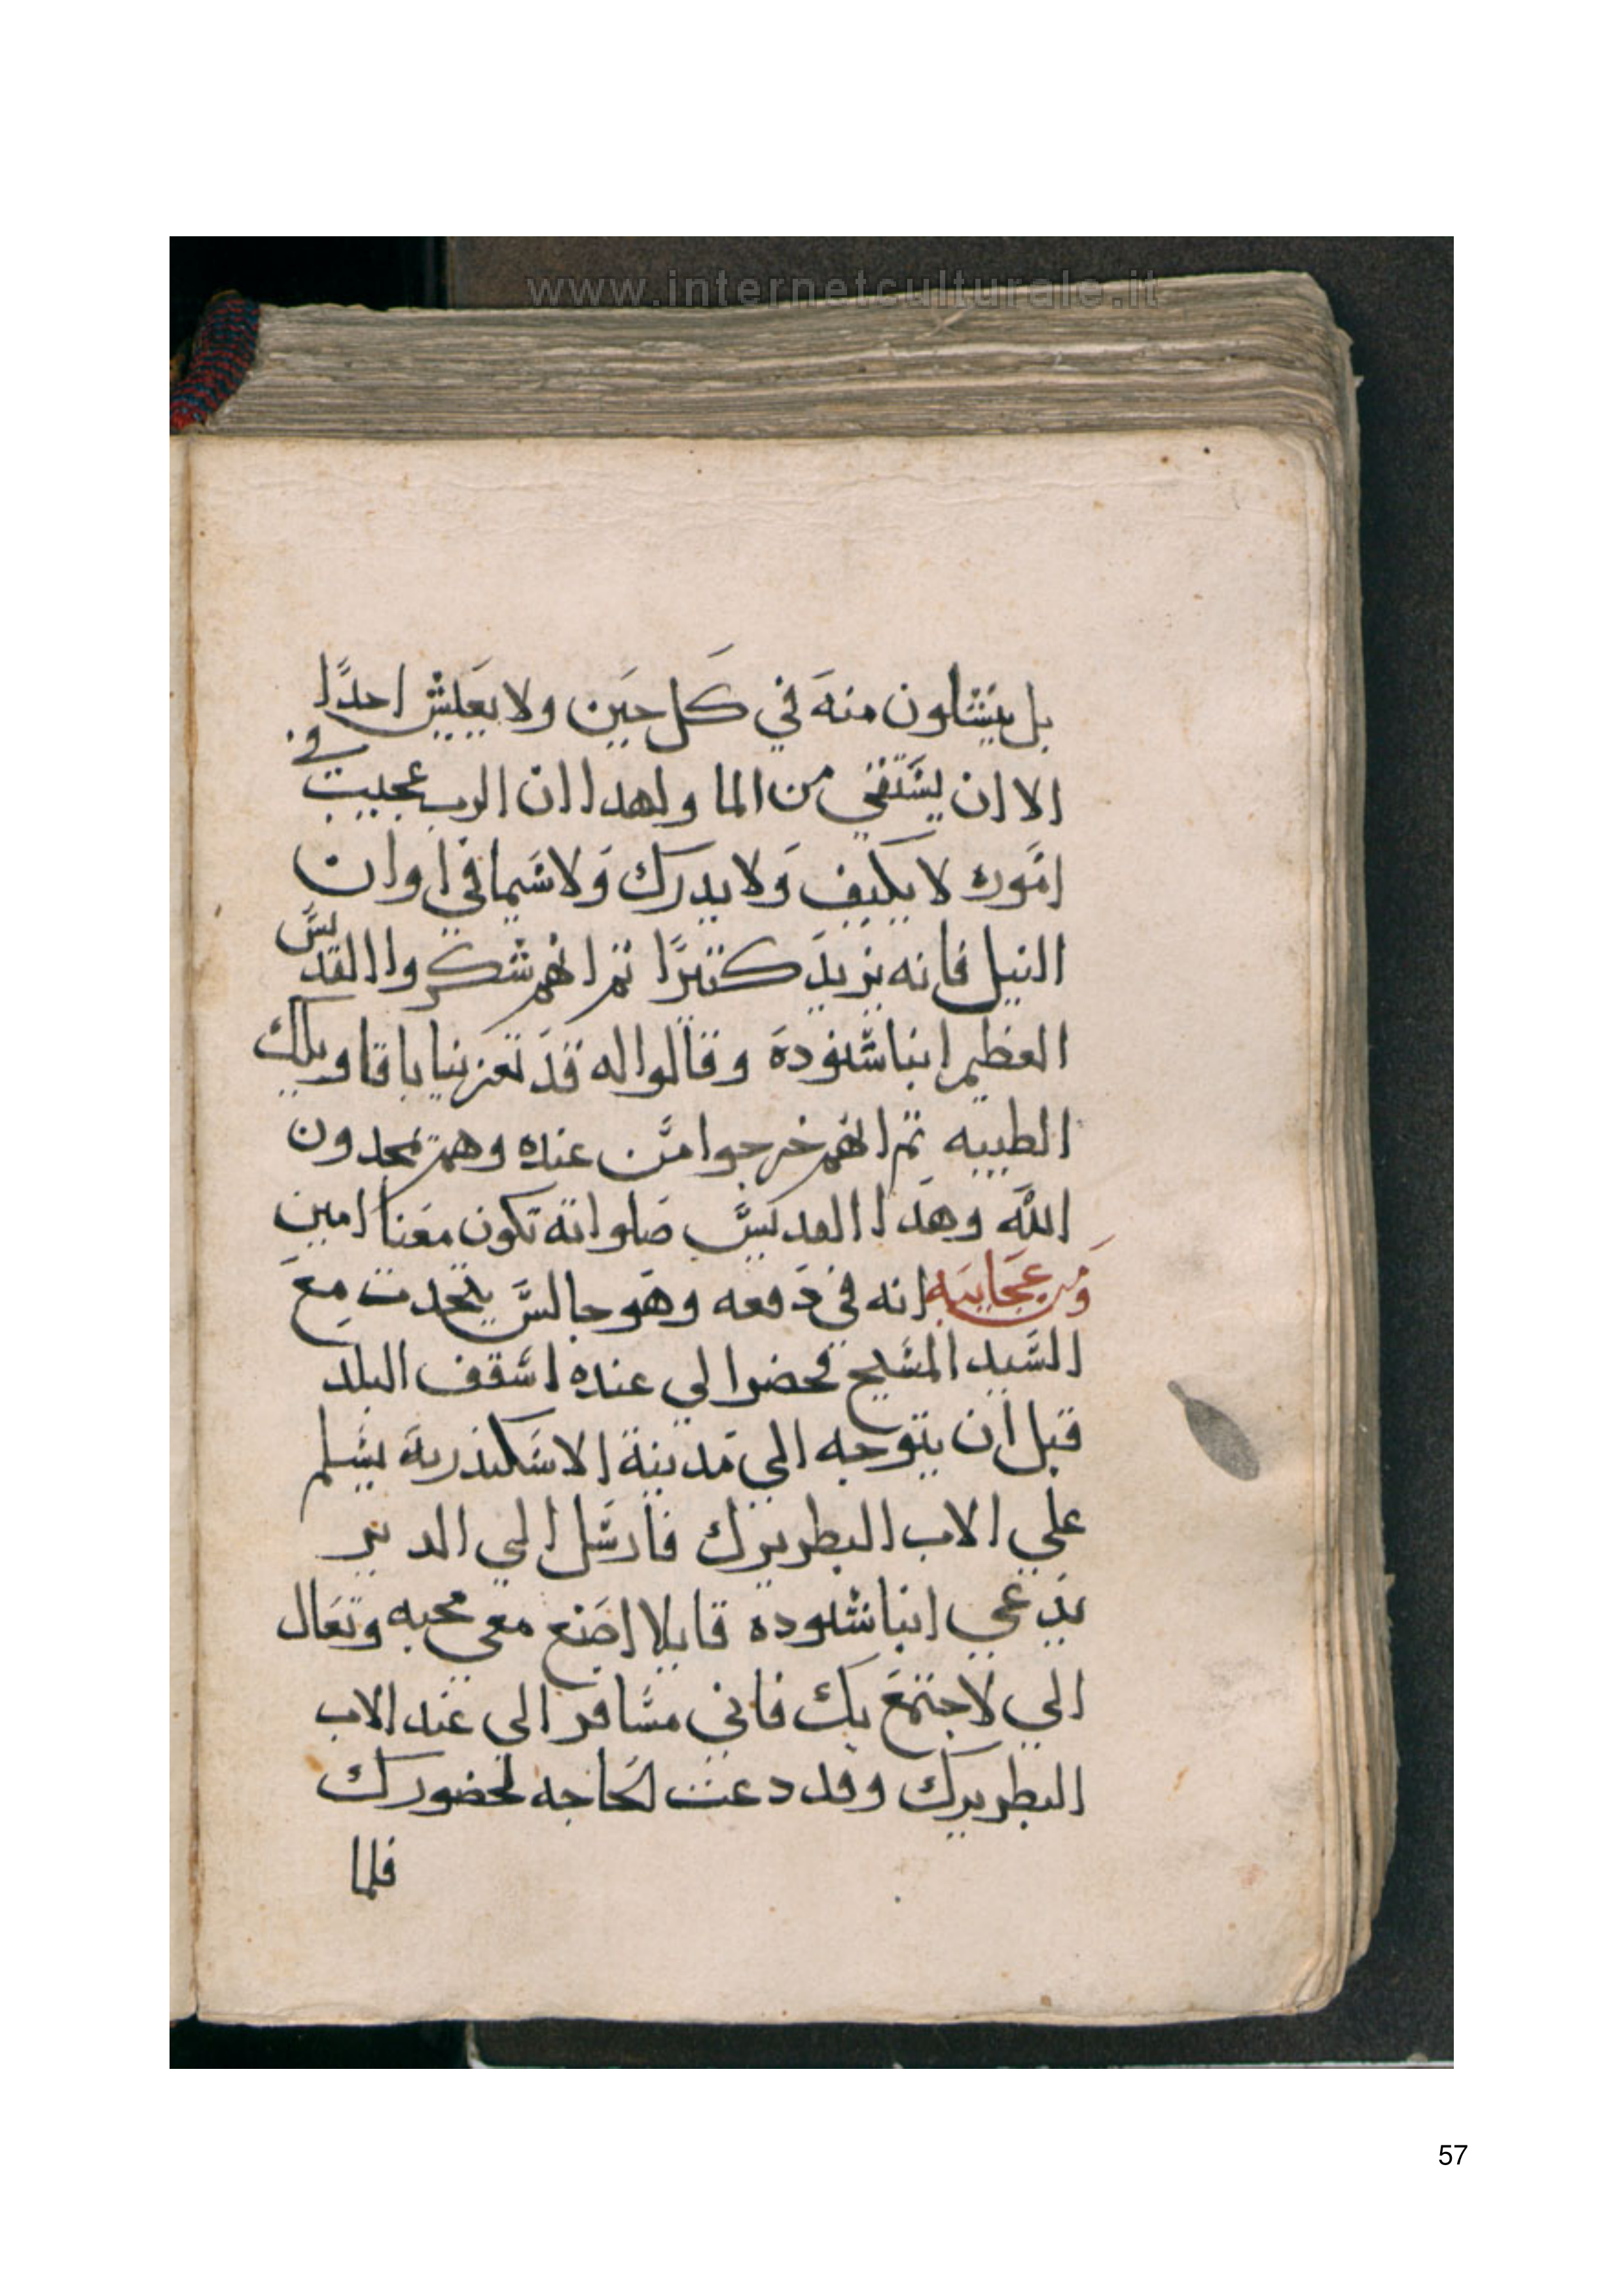 www.internetculturale.it
بل ينشلون منه في كل حين ولا يعيش احدًا
الا ان يستقي من الما ولهدا ان الرب عجيب في
اموره لا يكيف ولا يدرك ولا سيما في اوان
النيل فانه يزيد كتيرًا تم انهم شكروا القديس
العظيم انبا شنوده وقالوا له قد تعزينا باقاويلك
الطيبه تم انهم خرجوا من عنده وهم يمجدون
الله وهدا القديس صلواته تكون معنا امين
ومن عجايبه انه في دفعه وهو جالس يتحدت مع
السيد المسيح فحضر الي عنده اسقف البلد
قبل ان يتوجه الي مدينة الاسكندرية يسلم
علي الاب البطريرك فارسل الي الدير
يدعي انبا شنوده قايلا اصنع معي محبه وتعال
الي لاجتمع بك فاني مسافر الي عند الاب
البطريرك وقد دعت الحاجه لحضورك
فلما
57